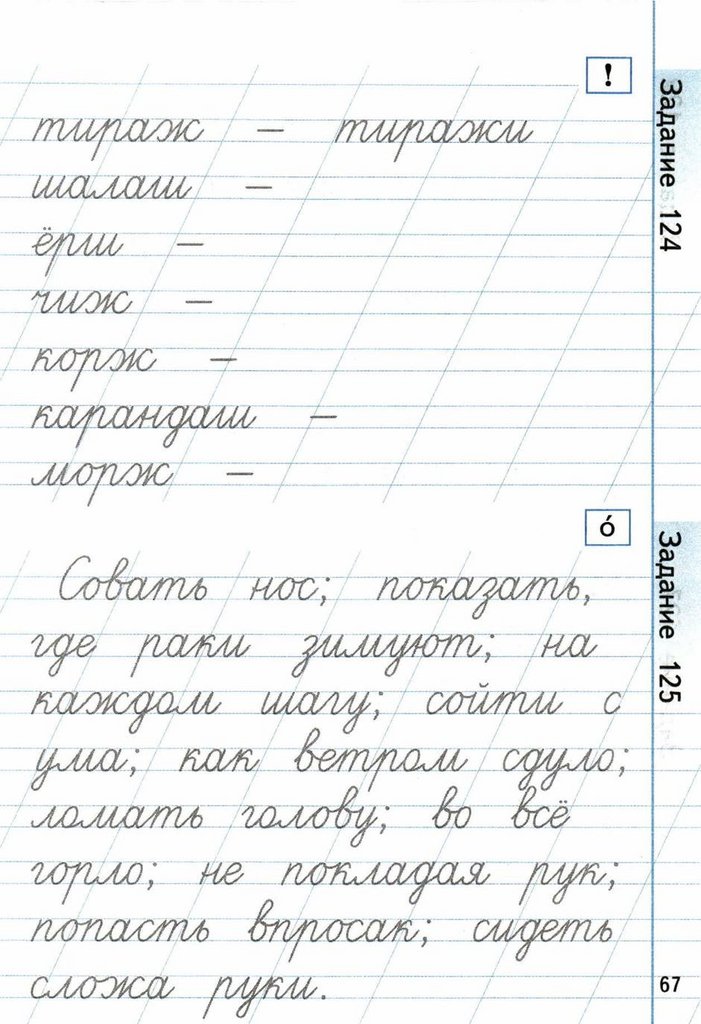 !
Задание 124
тираж – тиражи
шалаш –
ёрш –
чиж –
корж –
карандаш –
морж –
о́
Задание 125
Совать нос; показать,
где раки зимуют; на
каждом шагу; сойти с
ума; как ветром сдуло;
ломать голову; во всё
горло; не покладая рук;
попасть впросак; сидеть
сложа руки.
67